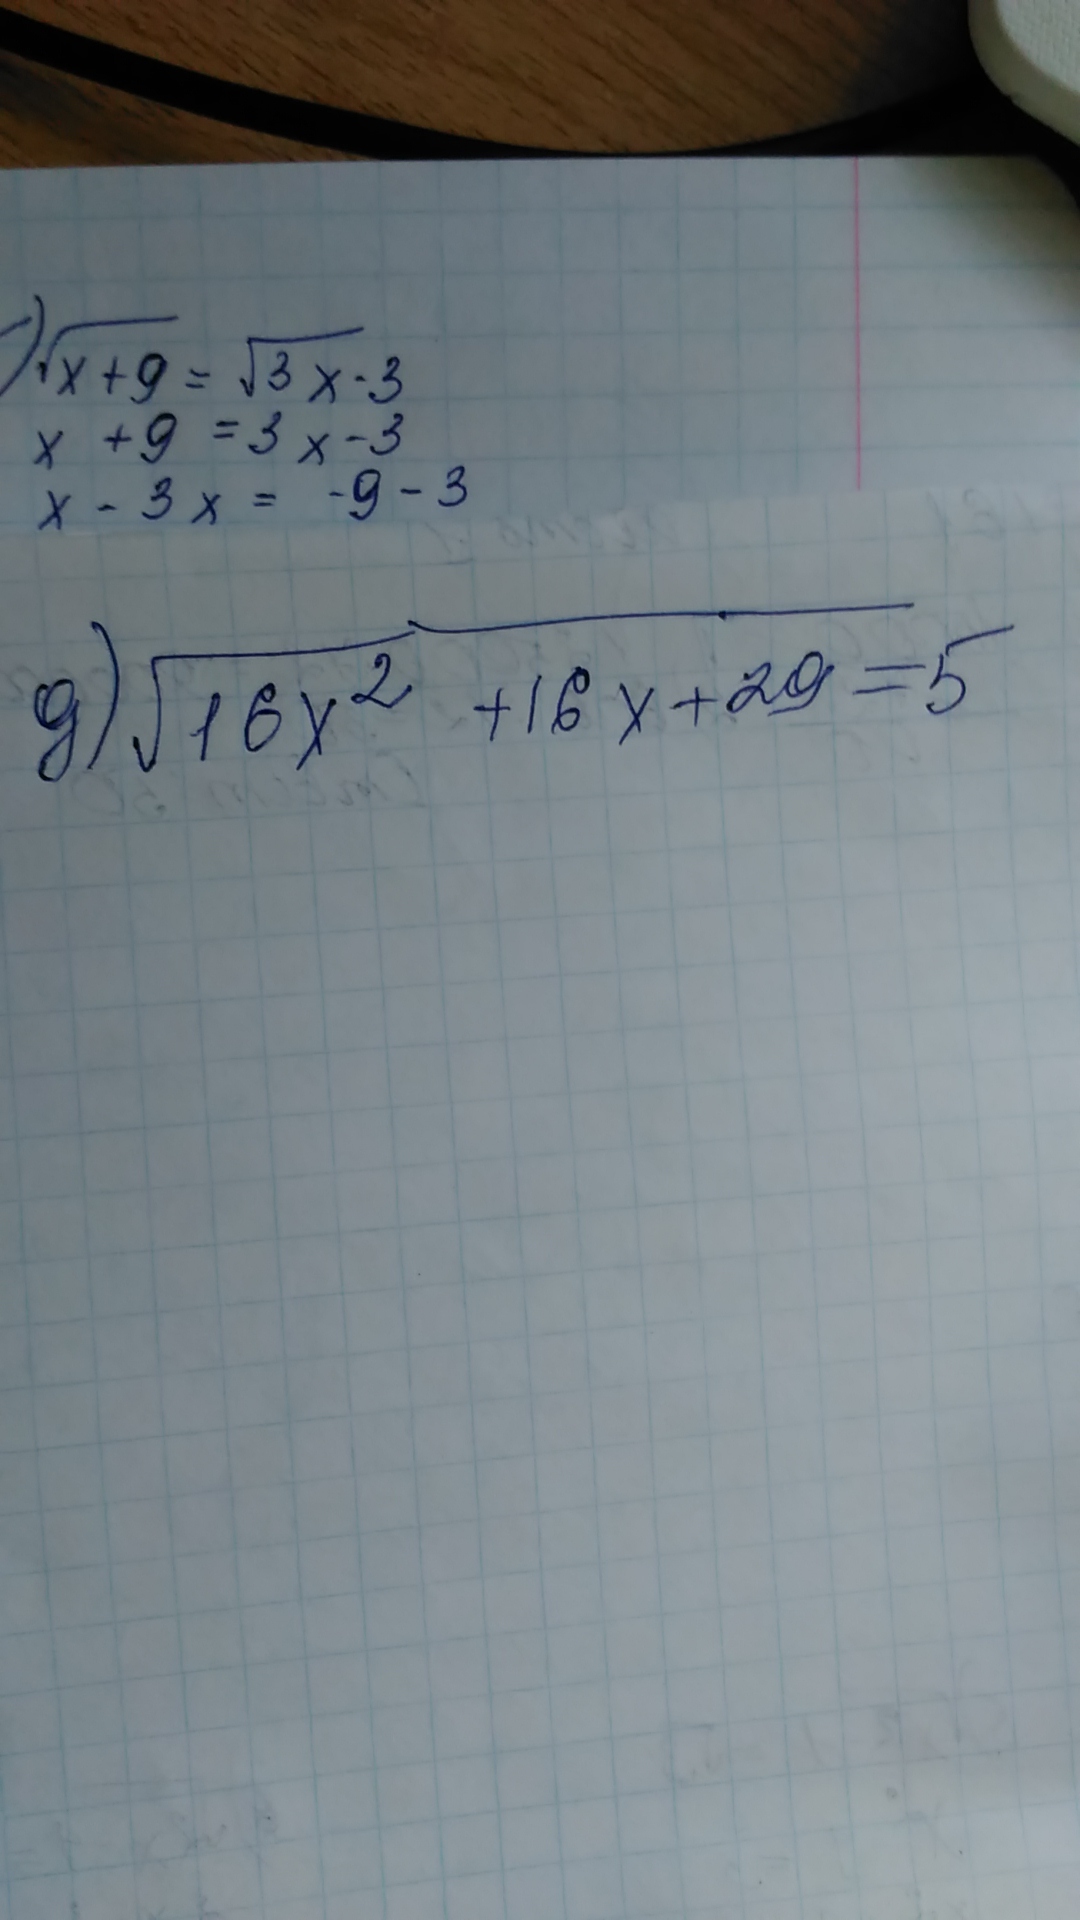 √x+9 = √3x-3
x +9 =3x-3
x - 3x = -9-3
g) √16x² +16x+29=5